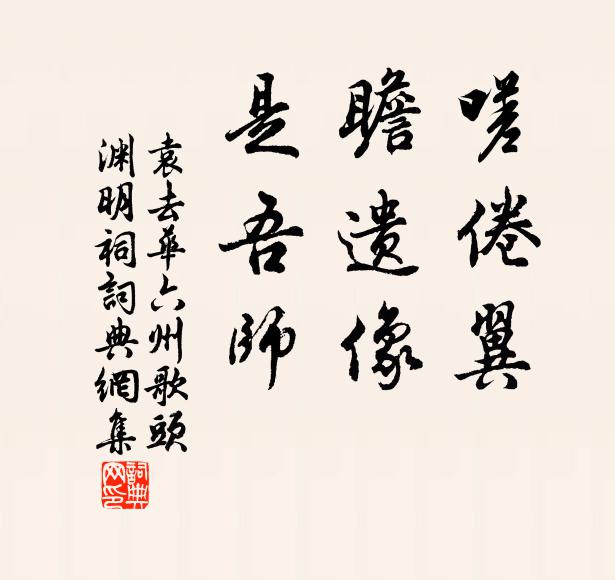 嗟倦翼
瞻遺像
是吾師
袁去華六州歌頭
渊明祠詞典網集
詞典网印